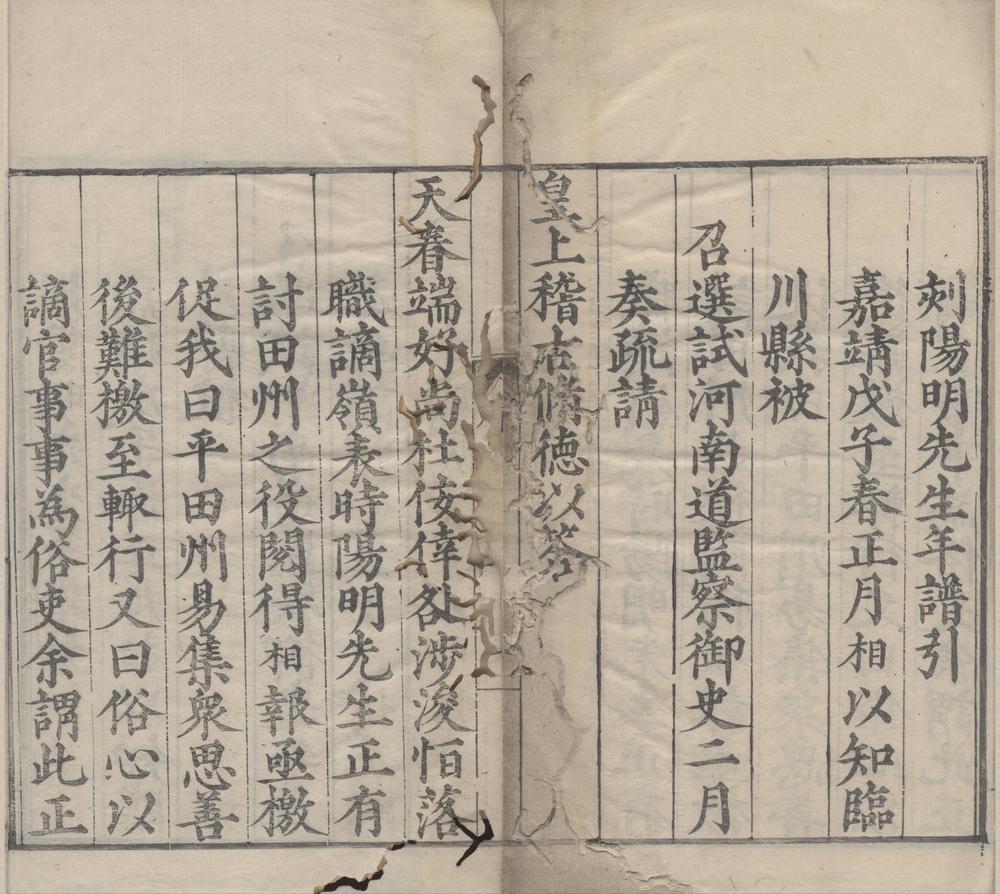 刻陽明先生年譜引
嘉靖戊子春正月相以知臨
川縣被
召選試河南道監察御史二月
奏疏請
皇上稽古脩德以答
天眷端好尚杜侫倖各涉浚恒落
職謫嶺表時陽明先生正有
討田州之役閱得相報亟檄
促我曰平田州易集衆思善
後難檄至輙行又曰俗心以
謫官事事為俗吏余謂此正